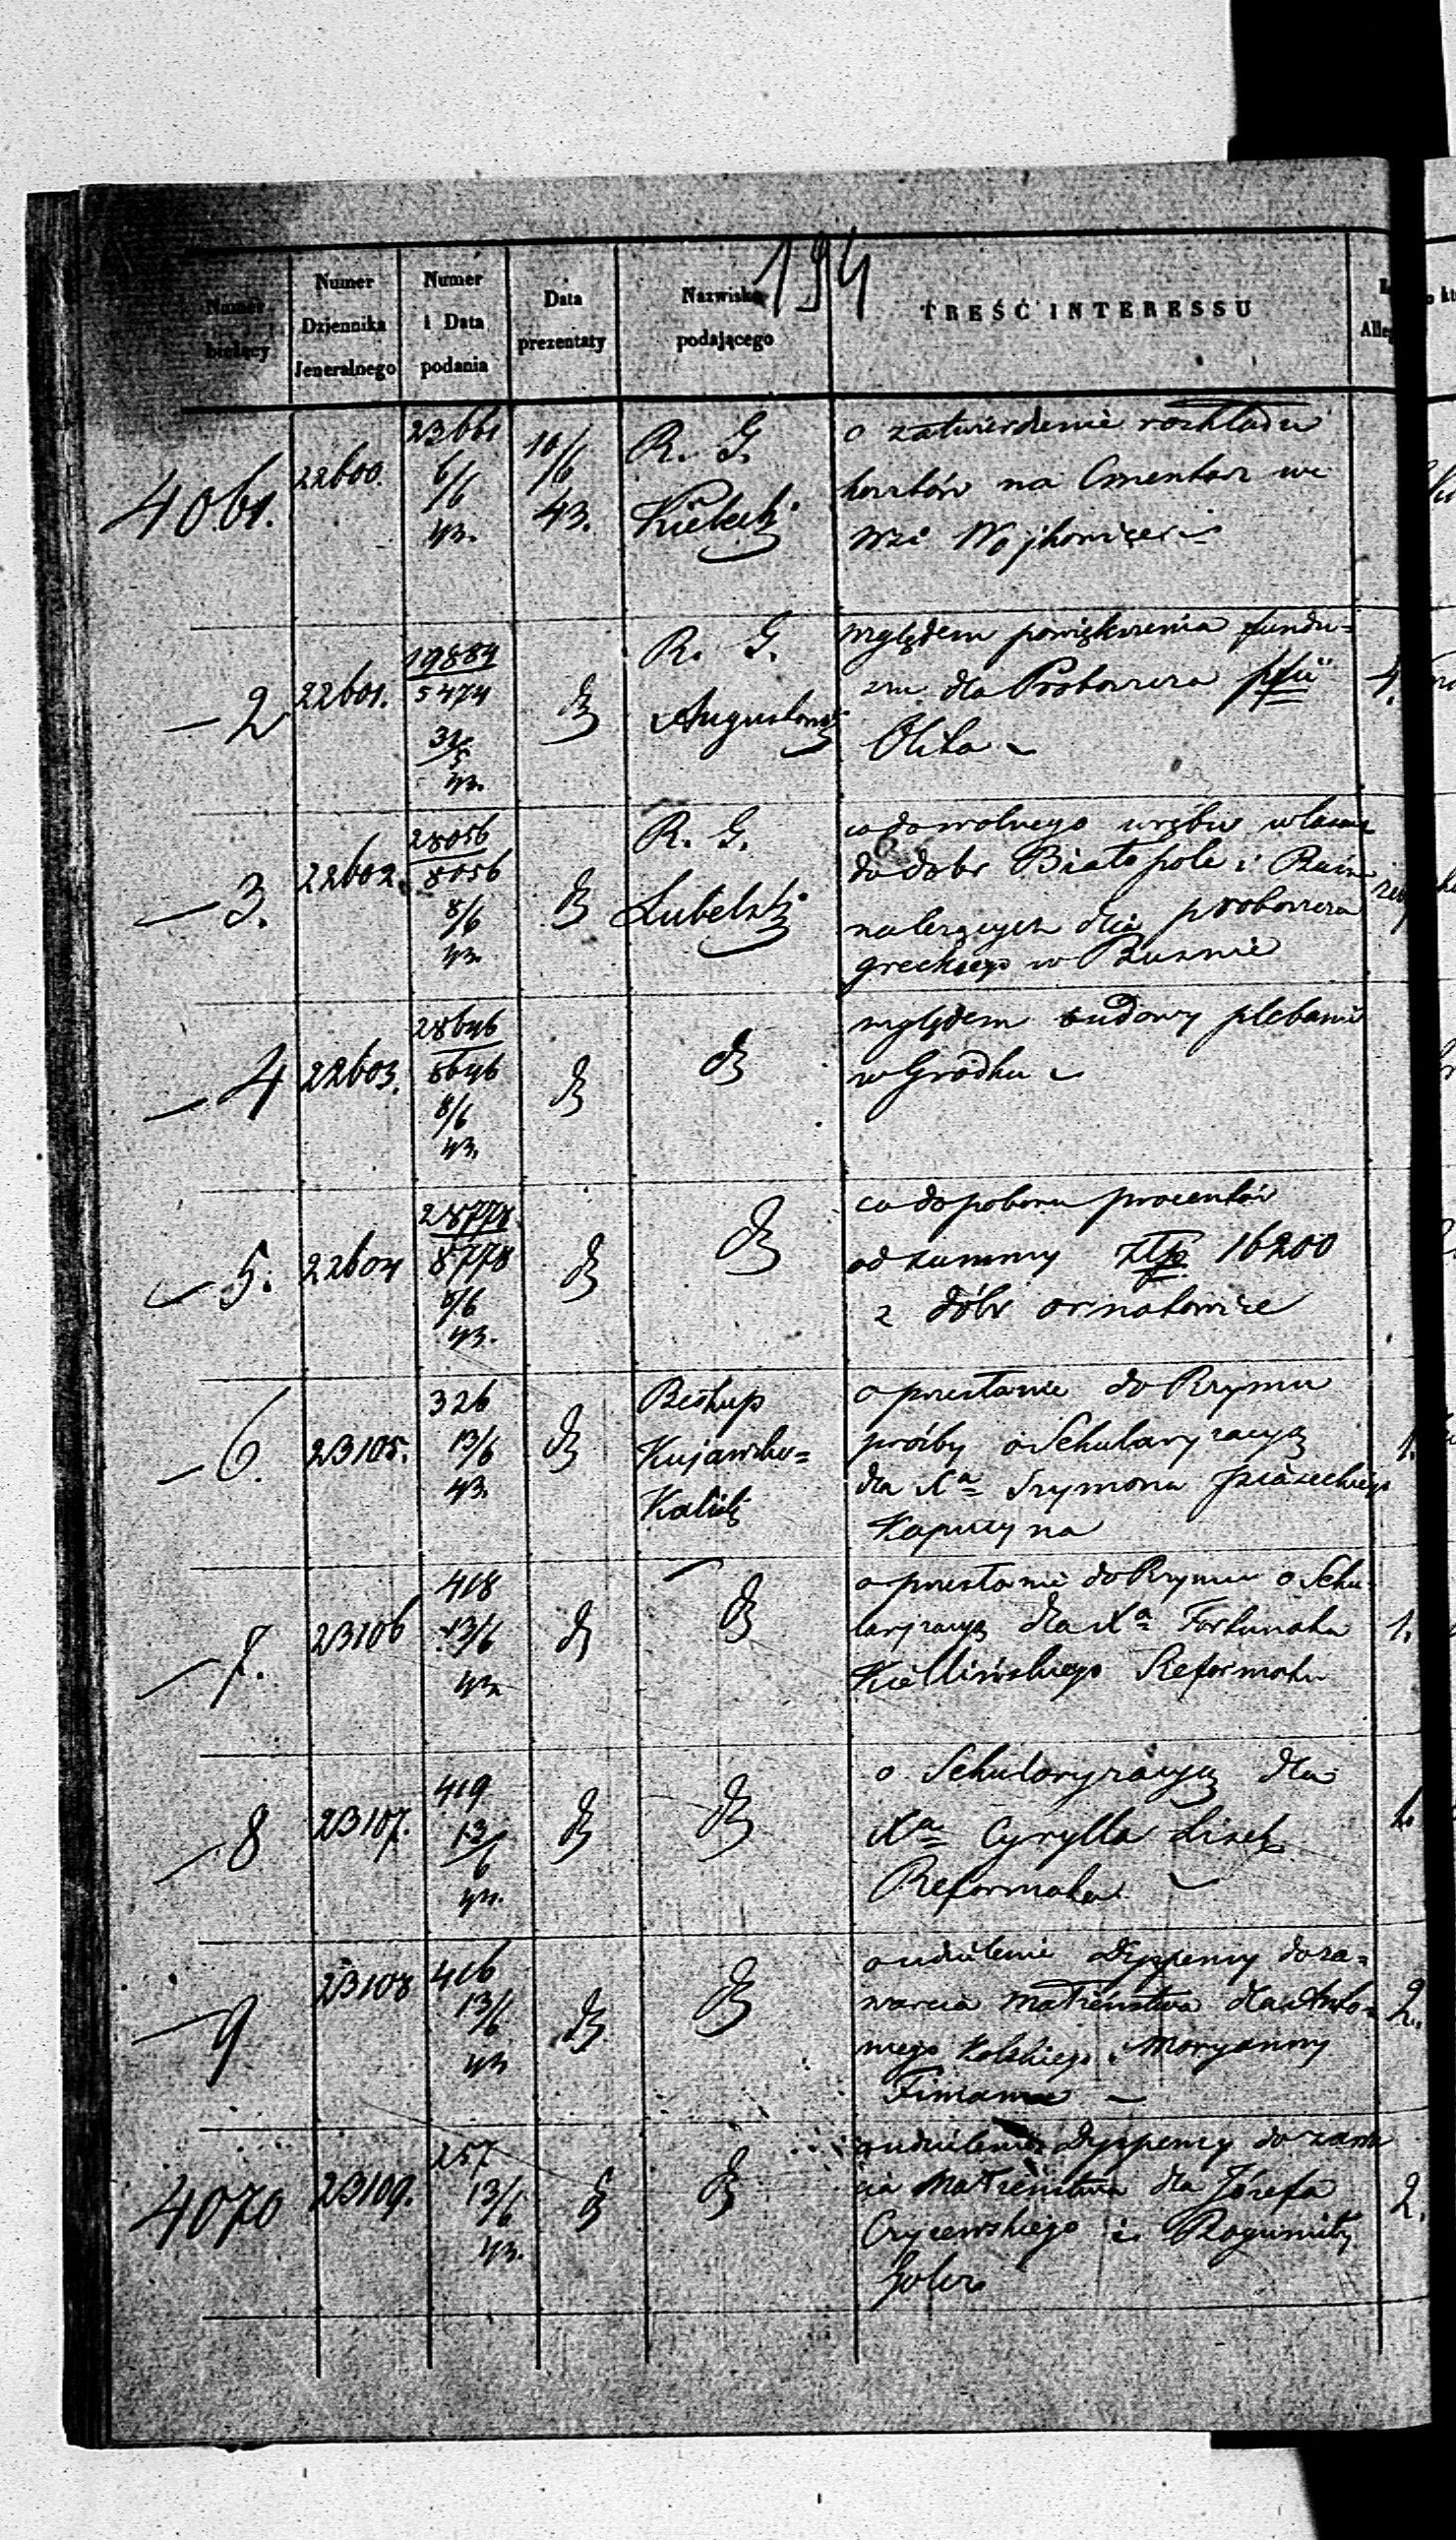 194
Numer bieżący
Numer Dziennika Jeneralnego
Numer i Data podania
Data prezentaty
Nazwisko podającego
TREŚĆ INTERESSU
4061.
22600.
23661
6/6
43.
10/6
43.
R. G.
Kielecki
o zatwierdzenie rozkładu
kosztów na Cmentarz we
wsi Wojkowicee
2
22601.
19884
5474
31/5
43.
R. G.
Augustowski
względem powiększenia fundu=
szu dla Proboszcza pssii
Olita
3.
22602.
28056
8056
8/6
43.
R. G.
Lubelski
co do wolnego wrębu
do dobr Białopole i
należących dla proboszcza
greckiego w Buśnie
4
22603.
28646
8646
8/6
43.
względem budowy plebanii
w Gródku
5.
22604
28778
8778
8/6
43.
co do poboru procentów
od summy złp. 16200
z dóbr ornatowice
6.
23105.
326
13/6
43.
Biskup
Kujawsko=
Kaliski
o przesłanie do Rzymu
prośby o Sekularyzacyą
dla Xa Szymona Piaseckiego
Kapucyna
1.
7.
23106
418
13/6
43.
o przesłanie do Rzymu o Seku
laryzacyą dla Xa Fortunata
Reformata
1.
8
23107.
419
13/6
43.
o Sekularyzacyą dla
Xa Cyrylla Lisek
Reformata
1.
9
23108
416
13/6
43
o udzielenie Dyspensy do za=
warcia Małżeństwa dla Anto=
niego Kolskiego i Maryanny
2.
4070
23109.
257
13/6
43.
o udzielenie Dyspensy do zawar
cia Małżeństwa dla Józefa
Czyżewskiego i Bogumiły
2.